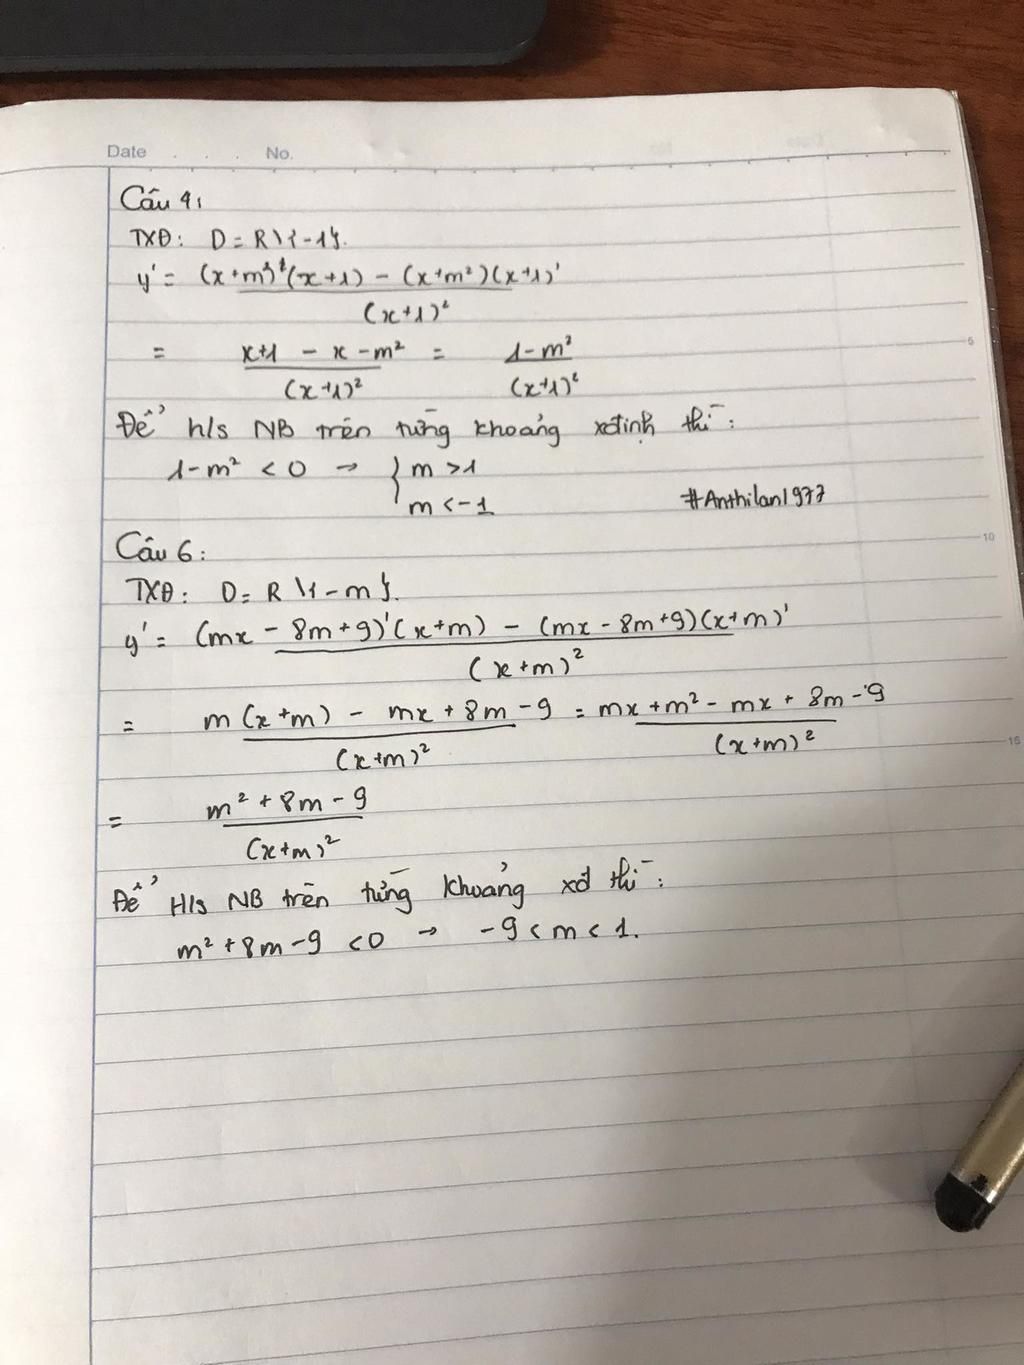 Date . . . No.
Câu 4:
TXĐ: D = R \ {-1}.
y' = (x+m²)'(x+1) - (x+m²)(x+1)'
(x+1)²
= x+1 - x - m² = 1-m²
(x+1)² (x+1)²
Để h/s NB trên từng khoảng xđịnh thì:
1-m² < 0 → { m > 1
m < -1
#Anthilan1977
5
Câu 6:
10
TXĐ: D = R \ {-m}.
y' = (mx - 8m+9)'(x+m) - (mx - 8m+9)(x+m)'
(x+m)²
= m(x+m) - mx + 8m - 9 = mx + m² - mx + 8m - 9
(x+m)² (x+m)²
15
= m² + 8m - 9
(x+m)²
Để H/s NB trên từng khoảng xđ thì:
m² + 8m - 9 < 0 → -9 < m < 1.